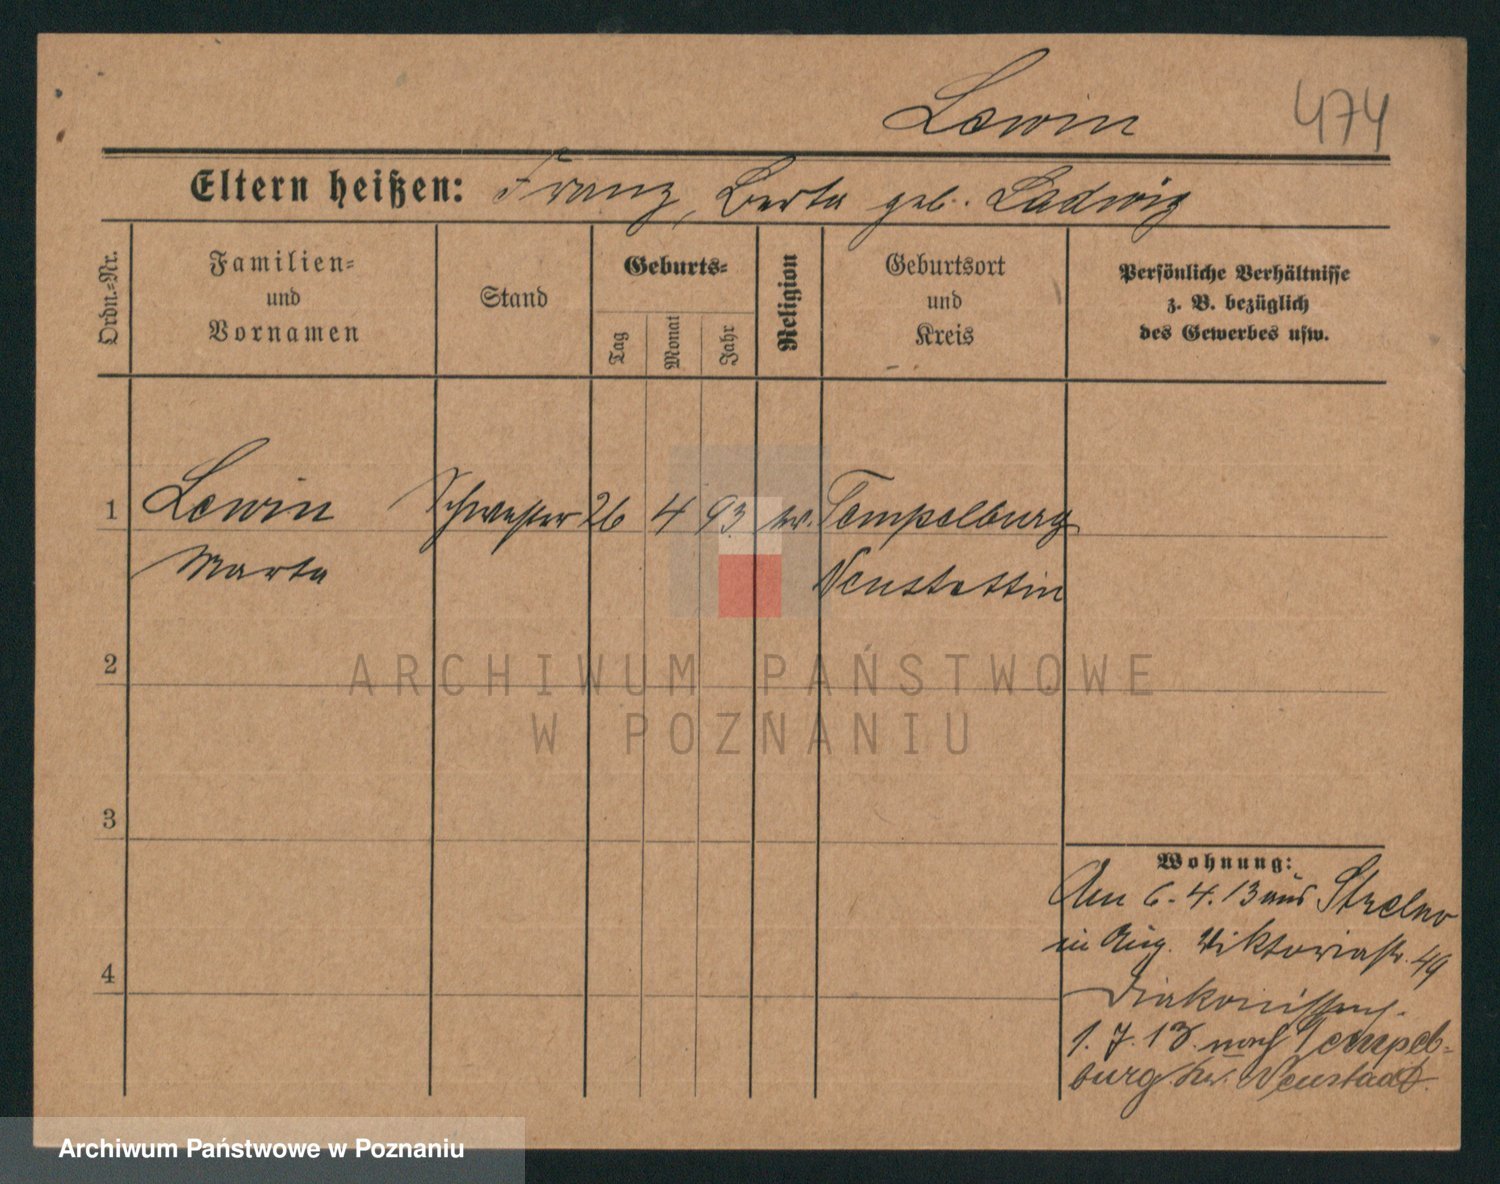 Lewin 474
Eltern heißen: Franz, Berta geb. Ladwig
Ordn.-Nr.
Familien-
und
Vornamen
Stand
Geburts-
Tag
Monat
Jahr
Religion
Geburtsort
und
Kreis
Persönliche Verhältnisse
z. B. bezüglich
des Gewerbes usw.
1 Lewin Schwester 26 4 93 ev. Tempelburg
Marta Neustettin
2
ARCHIWUM PAŃSTWOWE
W POZNANIU
3
Wohnung:
Am 6.4.13 aus Strelno
in Aug. Viktoriastr. 49
4
1.7.13. nach Tempel-
burg Kr. Neustadt.
Archiwum Państwowe w Poznaniu